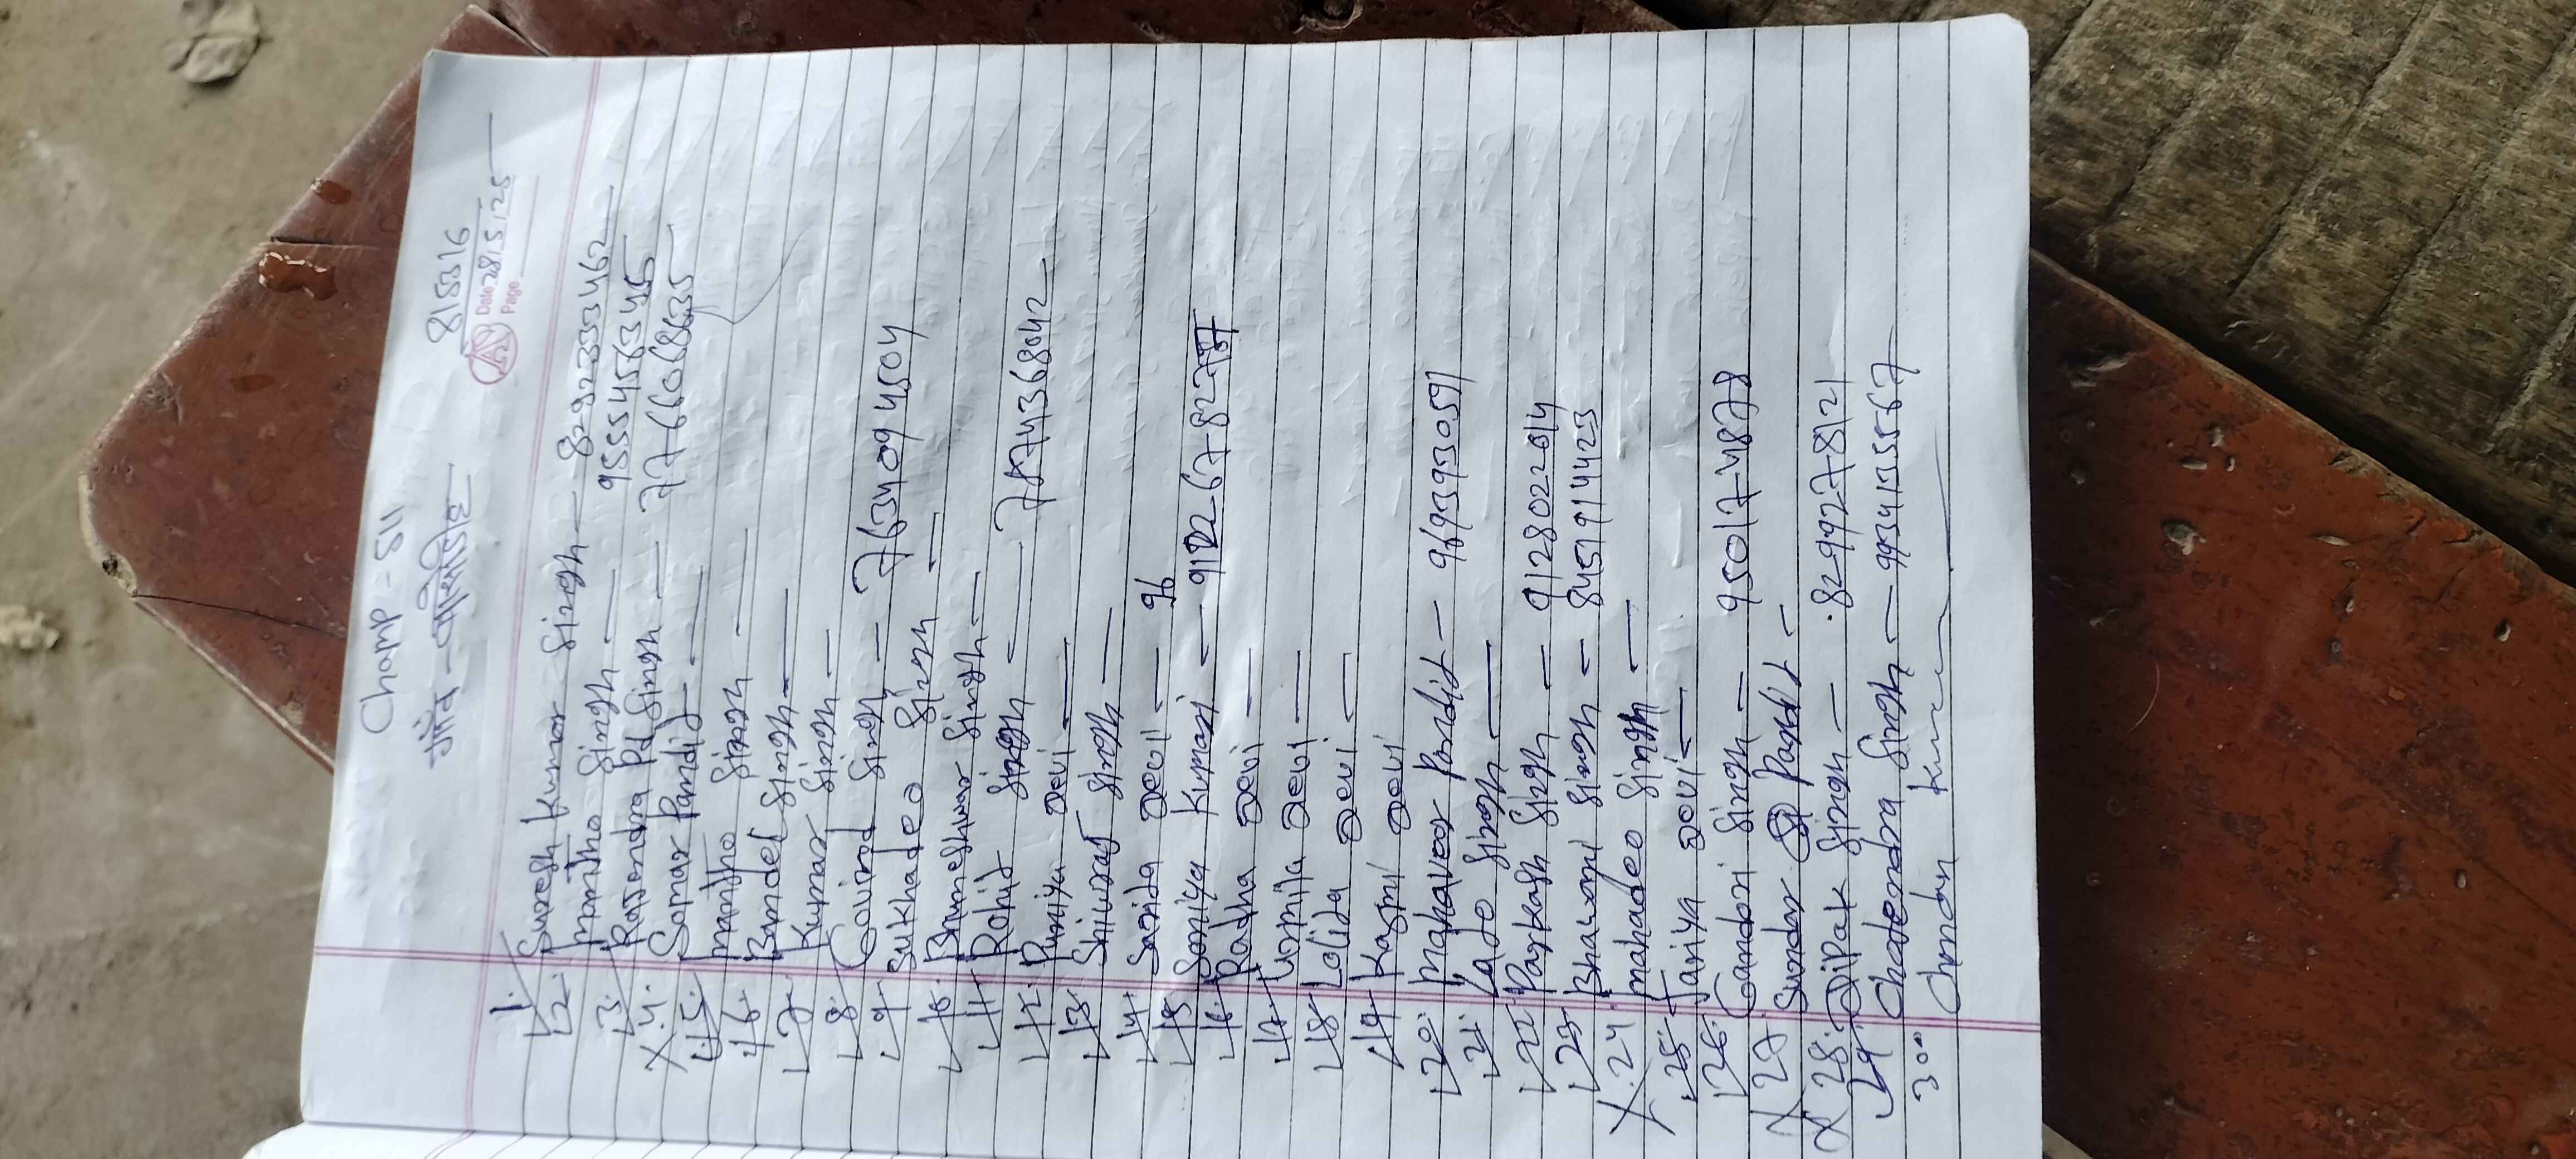 Champ - S11
815316
गाँव -
Date 28/5/25
Page
1. Suresh Kumar Singh — 8292333462
2. mantho Singh — 9555456345
3. Rajendra Pd Singh — 7766068635
X. 4. Somar Pandit —
5. mantho Singh —
6. Bandel Singh —
7. Kumar Singh —
8. Govind Singh — 7634094504
9. Sukhadeo Singh —
10. Brumeshwar Singh —
11. Rohit Singh — 7874368042
12. Pumiya Devi —
13. Shiwraj Singh —
14. Sarita Devi — 96
15. Soniya Kumari — 9122678227
16. Radha Devi —
17. Urmila Devi —
18. Lalita Devi —
19. Kasmi Devi
20. Mahaveer Pandit — 9693930591
21. Lado Singh —
22. Parkash Singh — 9128022614
23. Bhawani Singh — 8459114423
X. 24. mahadeo Singh —
25. Jariya Devi —
26. Gandori Singh — 9501748728
X 27 Sundar Pandit —
X 28. Dipak Singh — 8299278121
29 Chatendra Singh — 9934135567
30 Chandan Kumar